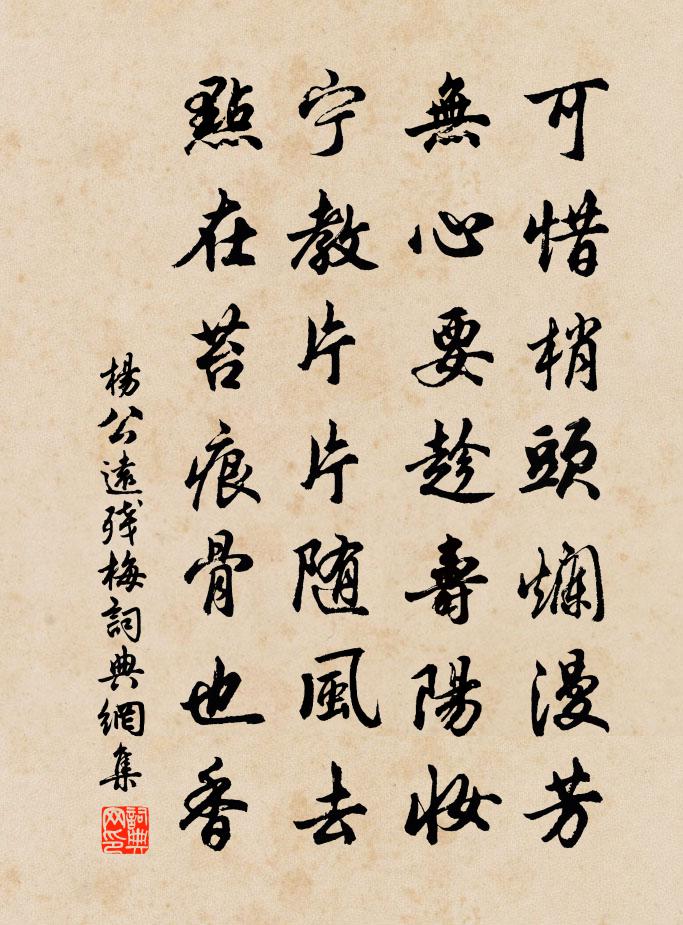 可惜梢頭爛漫芳
無心要趁壽陽妝
宁教片片随風去
點在苔痕骨也香
楊公遠殘梅詞典網集
詞典网印